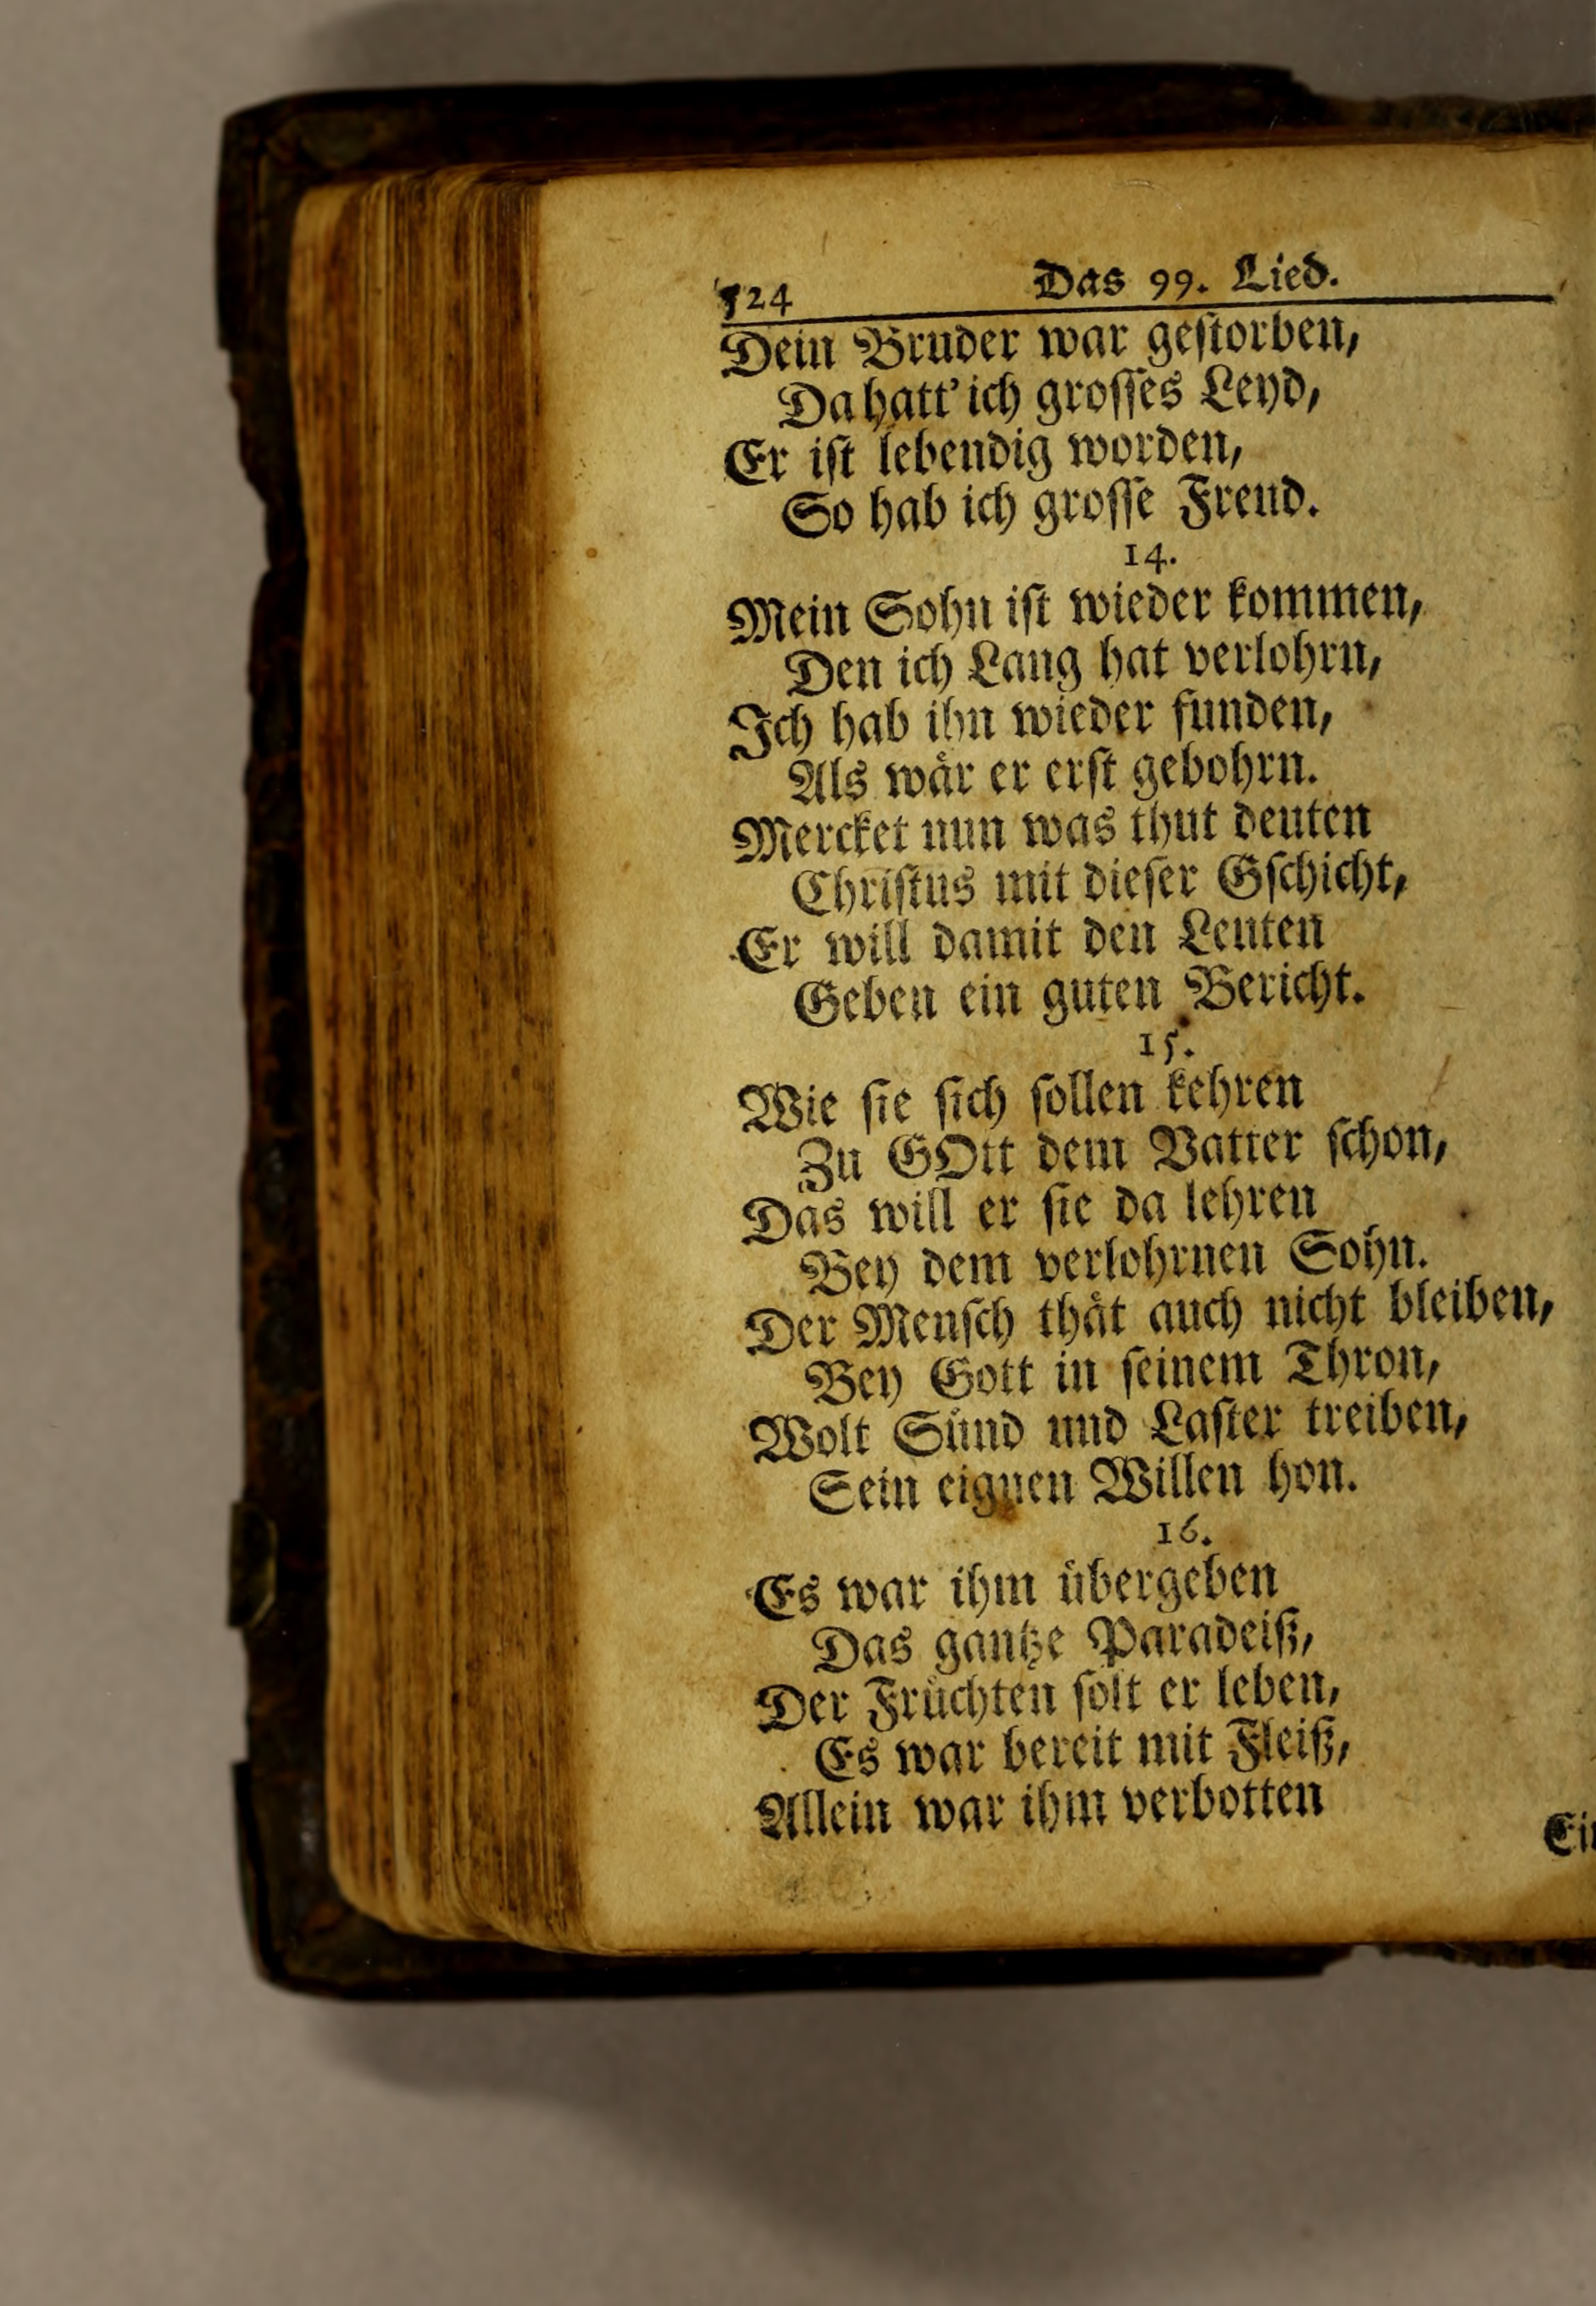 524 Das 99. Lied.
Dein Bruder war geſtorben,
Da hatt' ich groſſes Leyd,
Er iſt lebendig worden,
So hab ich groſſe Freud.
14.
Mein Sohn iſt wieder kommen,
Den ich Lang hat verlohrn,
Ich hab ihn wieder funden,
Als wår er erſt gebohrn.
Mercket nun was thut deuten
Chriſtus mit dieſer Gſchicht,
Er will damit den Leuten
Geben ein guten Bericht.
15.
Wie ſie ſich ſollen kehren
Zu GOtt dem Vatter ſchon,
Das will er ſie da lehren
Bey dem verlohrnen Sohn.
Der Menſch thåt auch nicht bleiben,
Bey Gott in ſeinem Thron,
Wolt Sůnd und Laſter treiben,
Sein eignen Willen hon.
16.
Es war ihm ůbergeben
Das gantze Paradeiß,
Der Frůchten ſolt er leben,
Es war bereit mit Fleiß,
Allein war ihm verbotten